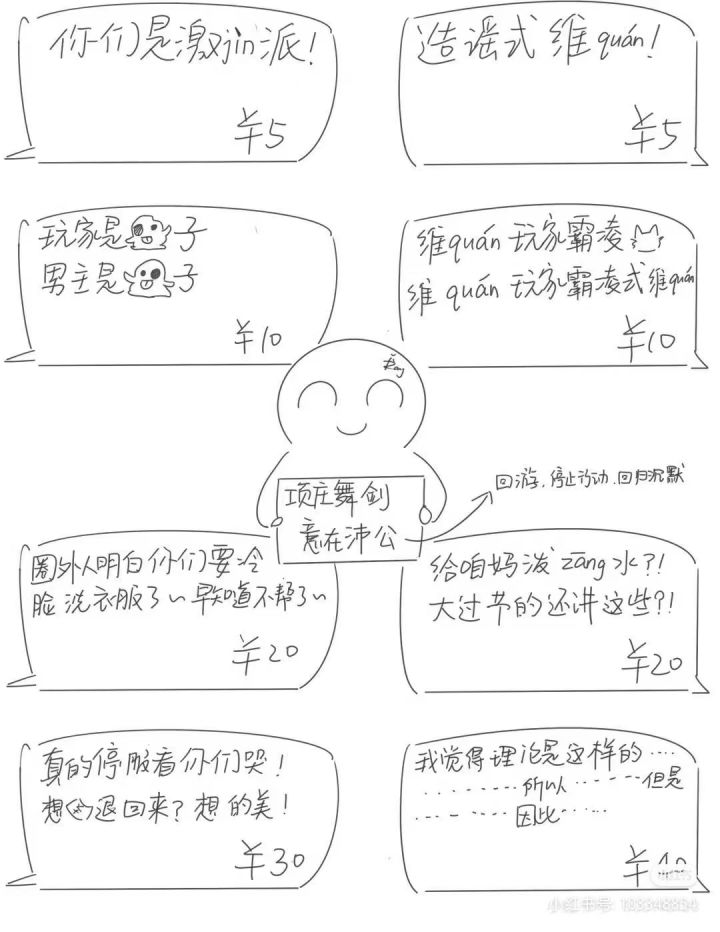 你们是激jìn派！
￥5
造谣式维quán！
￥5
玩家是子
男主是子
￥10
维quán玩家霸凌
维quán玩家霸凌式维quán
￥10
项庄舞剑
意在沛公
回游，停止行动，回归沉默
圈外人明白你们要冷
脸洗衣服了~早知道不帮了~
￥20
给咱妈泼zāng水？！
大过节的还讲这些？！
￥20
真的停服看你们哭！
想退回来？想的美！
￥30
我觉得理论是这样的....
........所以.......但是
.......因此.....
小红书
小红书号